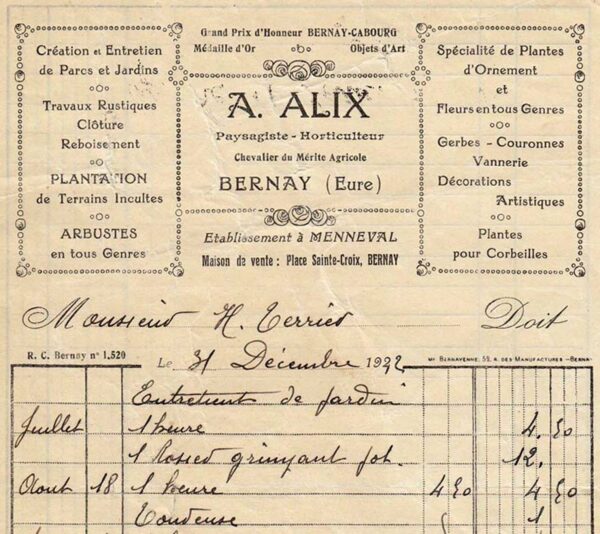 Grand Prix d'Honneur BERNAY-CABOURG
Médaille d'Or Objets d'Art
Création et Entretien
de Parcs et Jardins
Travaux Rustiques
Clôture
Reboisement
PLANTATION
de Terrains Incultes
ARBUSTES
en tous Genres
A. ALIX
Paysagiste - Horticulteur
Chevalier du Mérite Agricole
BERNAY (Eure)
Etablissement à MENNEVAL
Maison de vente : Place Sainte-Croix, BERNAY
Spécialité de Plantes
d'Ornement
et
Fleurs en tous Genres
Gerbes - Couronnes
Vannerie
Décorations
Artistiques
Plantes
pour Corbeilles
Monsieur H. Doit
R. C. Bernay n° 1.520
Le 31 Décembre 1932
IMP BERNAYENNE, 59, R. DES MANUFACTURES - BERNA
Entretient de jardin
Juillet 1 heure 4. 50
1 Rosier grimpant 12.
Aout 18 1 heure 4 50 4 50
Tondeuse 1